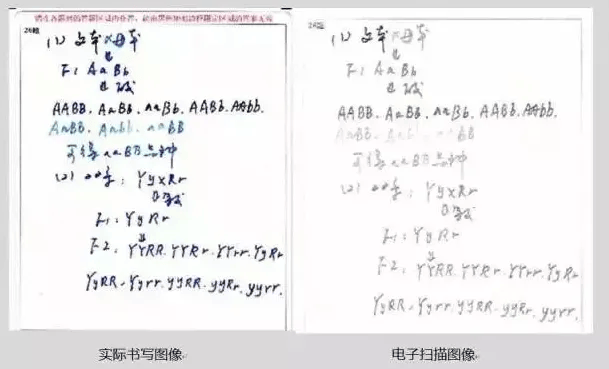 请在各题目的答题区域内作答，超出黑色矩形边框限定区域的答案无效
(1) 父本×母本
F1: AaBb
AABB. AaBb. aaBb. AABb. AAbb.
AaBB. Aabb. aaBB
可得aaBB品种
(2) Yy×Rr
F1: YyRr
F2: YYRR. YYRr. YYrr. YyRr
YyRR. Yyrr. yyRR. yyRr. yyrr.
实际书写图像
(1) 父本×母本
F1: AaBb
AABB. AaBb. aaBb. AABb. AAbb.
AaBB. Aabb. aaBB
可得aaBB品种
(2) Yy×Rr
F1: YyRr
F2: YYRR. YYRr. YYrr. YyRr
YyRR. Yyrr. yyRR. yyRr. yyrr.
电子扫描图像